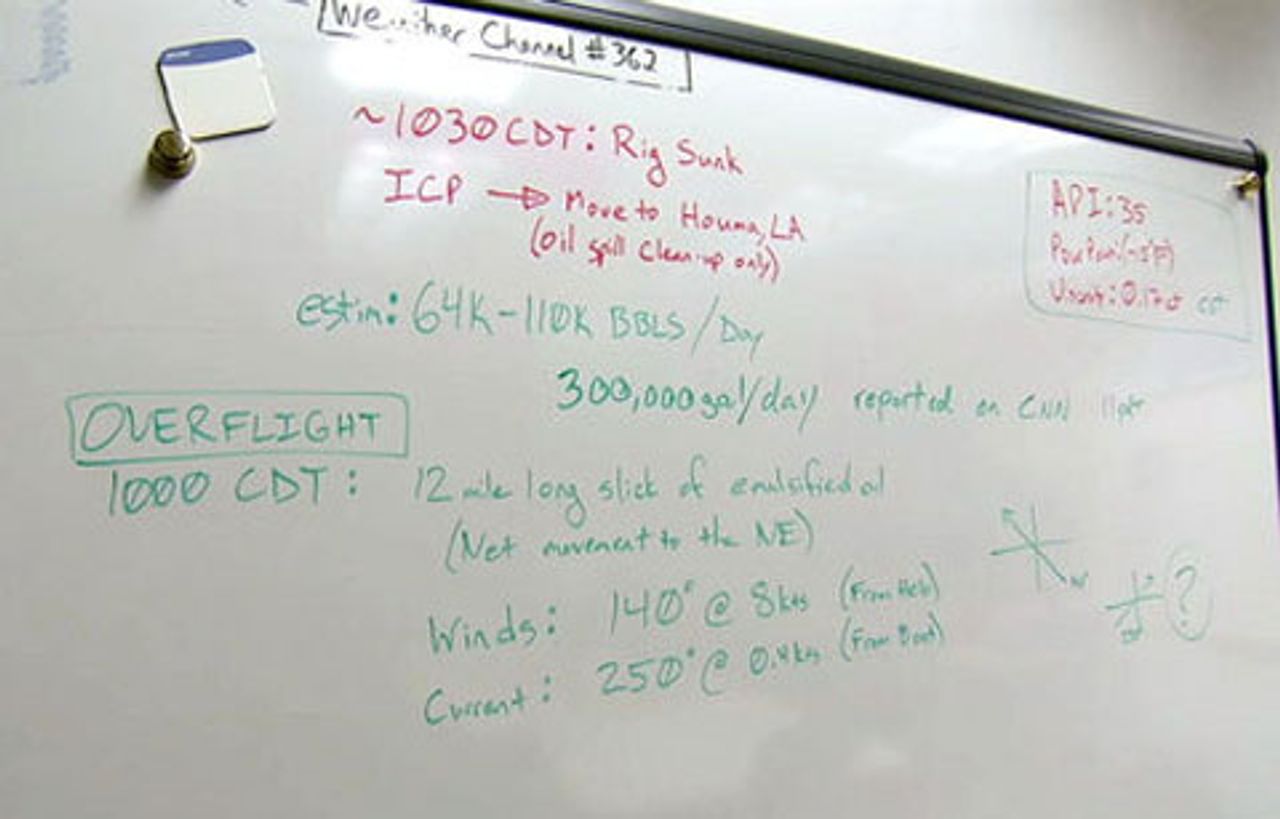 Weather Channel #362
~1030 CDT: Rig Sunk
ICP → Move to Houma, LA
(Oil spill Clean-up only)
API: 35
estim: 64K-110K BBLS/Day
300,000 gal/day reported on CNN
OVERFLIGHT
1000 CDT: 12 mile long slick of emulsified oil
(Net movement to the NE)
Winds: 140° @ 8kts (From Helo)
Current: 250° @ 0.4kts (From Boat)
?